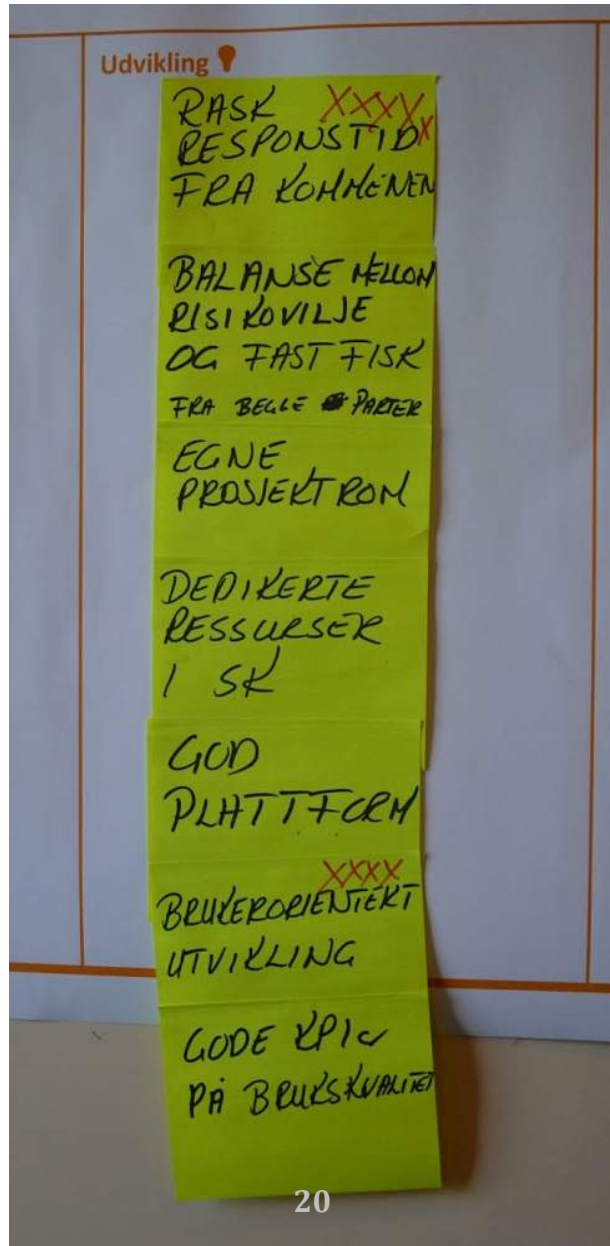 Udvikling
RASK XXXX
RESPONSTID X
FRA KOMMENEN
BALANSE MELLOM
RISIKOVILJE
OG FAST FISK
FRA BEGGE PARTER
EGNE
PROSJEKTROM
DEDIKERTE
RESSURSER
I SK
GOD
PLATTFORM
XXXX
BRUKERORIENTERT
UTVIKLING
GODE KPIer
PÅ BRUKSKVALITET
20